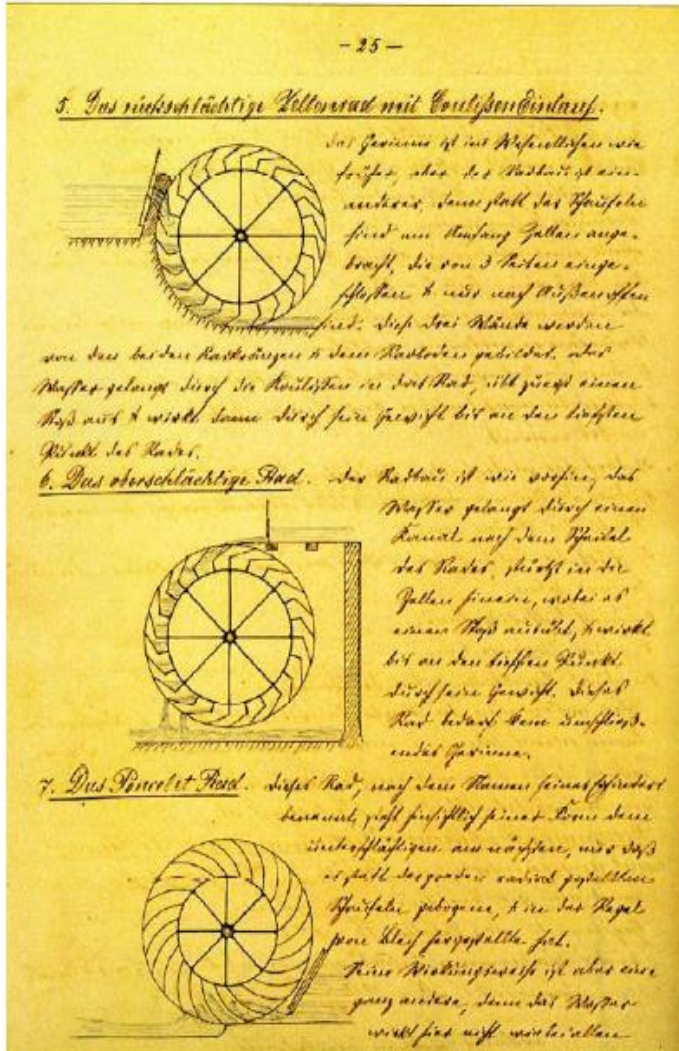 - 25 -
5. Das rückschlächtige Zellenrad mit Coulißen Einlauf.
das Gerinne ist im Wesentlichen wie
früher, aber der Radbau ist ein
anderer, denn statt der Schaufeln
sind am Umfang Zellen ange-
bracht, die von 3 Seiten einge-
schlossen & nur nach Außen offen
sind. Diese drei Wände werden
von den beiden Radkränzen & dem Radboden gebildet. das
Wasser gelangt durch die Koulissen in das Rad, übt zuerst einen
Stoß aus & wirkt dann durch sein Gewicht bis an den tiefsten
Punkt des Rades.
6. Das oberschlächtige Rad. Der Radbau ist wie vorhin, das
Wasser gelangt durch einen
Kanal nach dem Scheitel
des Rades, stürzt in die
Zellen hinein, wobei es
einen Stoß ausübt, & wirkt
bis an den tiefsten Punkt
durch sein Gewicht. Dieses
Rad bedarf kein umschließ-
endes Gerinne.
7. Das Poncelet Rad. Dieses Rad, nach dem Namen seines Erfinders
benannt, sieht hinsichtlich seiner Form dem
unterschlächtigen am nächsten, nur daß
es statt der geraden radial gestellten
Schaufeln gebogene, & in der Regel
von Blech hergestellte hat.
Seine Wirkungsweise ist aber eine
ganz andere, denn das Wasser
wirkt hier nicht wie bei allen